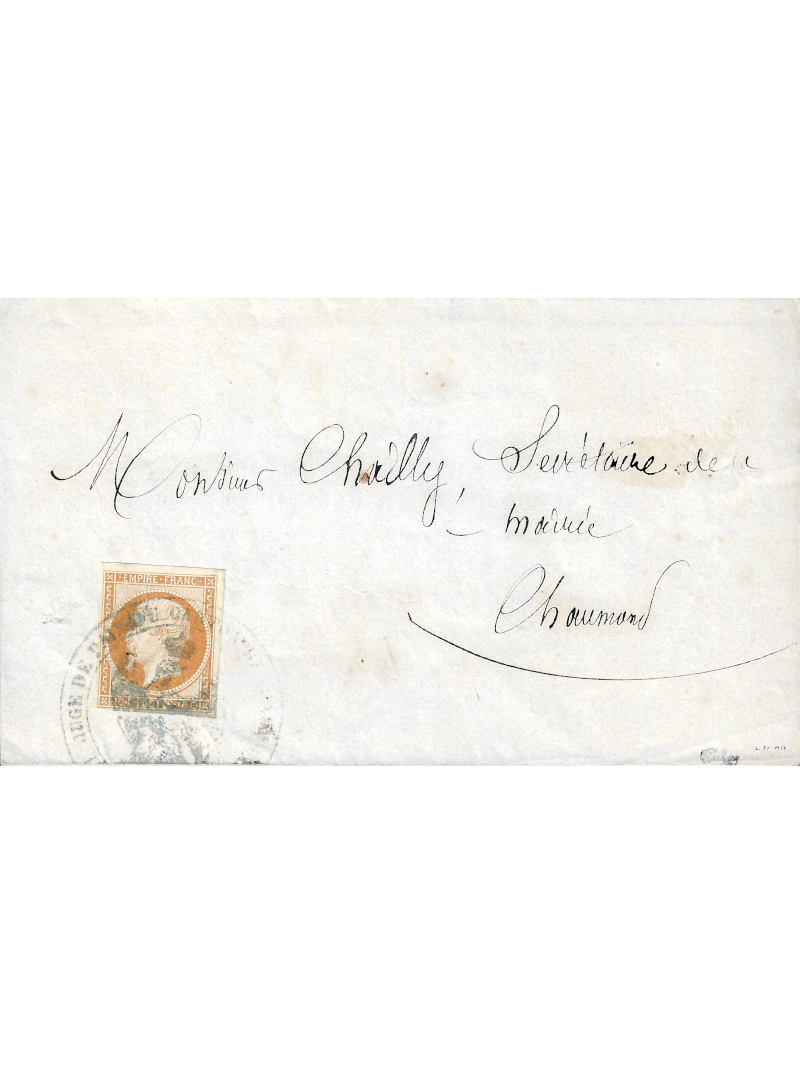 Monsieur Chailly, Secrétaire de la
mairie
Chaumond
EMPIRE FRANC
JUGE DE PAIX